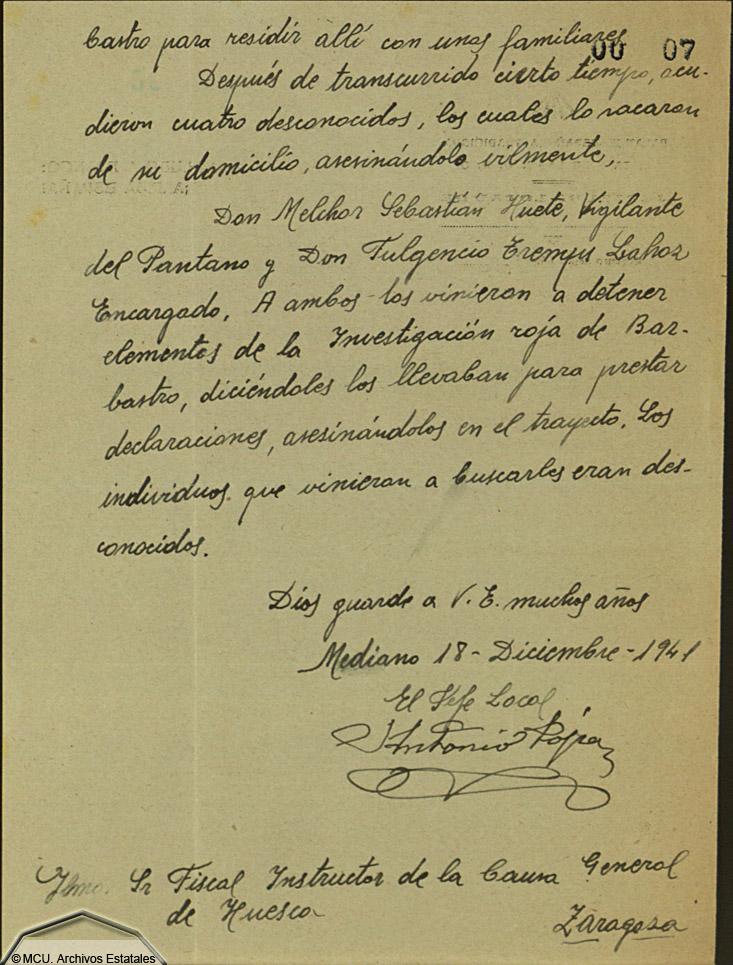 bastro para residir allí con unos familiares
00 07
Después de transcurrido cierto tiempo, acu-
dieron cuatro desconocidos, los cuales lo sacaron
de su domicilio, asesinándolo vilmente,
Don Melchor Sebastian Huete, Vigilante
del Pantano y Don Fulgencio Lahoz
Encargado. A ambos los vinieron a detener
elementos de la Investigación roja de Bar-
bastro, diciéndoles los llevaban para prestar
declaraciones, asesinándolos en el trayecto. Los
individuos que vinieron a buscarles eran des-
conocidos.
Dios guarde a V. E. muchos años
Mediano 18 - Diciembre - 1941
El Jefe Local
Antonio
Ilmo. Sr Fiscal Instructor de la Causa General
de Huesca
Zaragoza
© MCU. Archivos Estatales